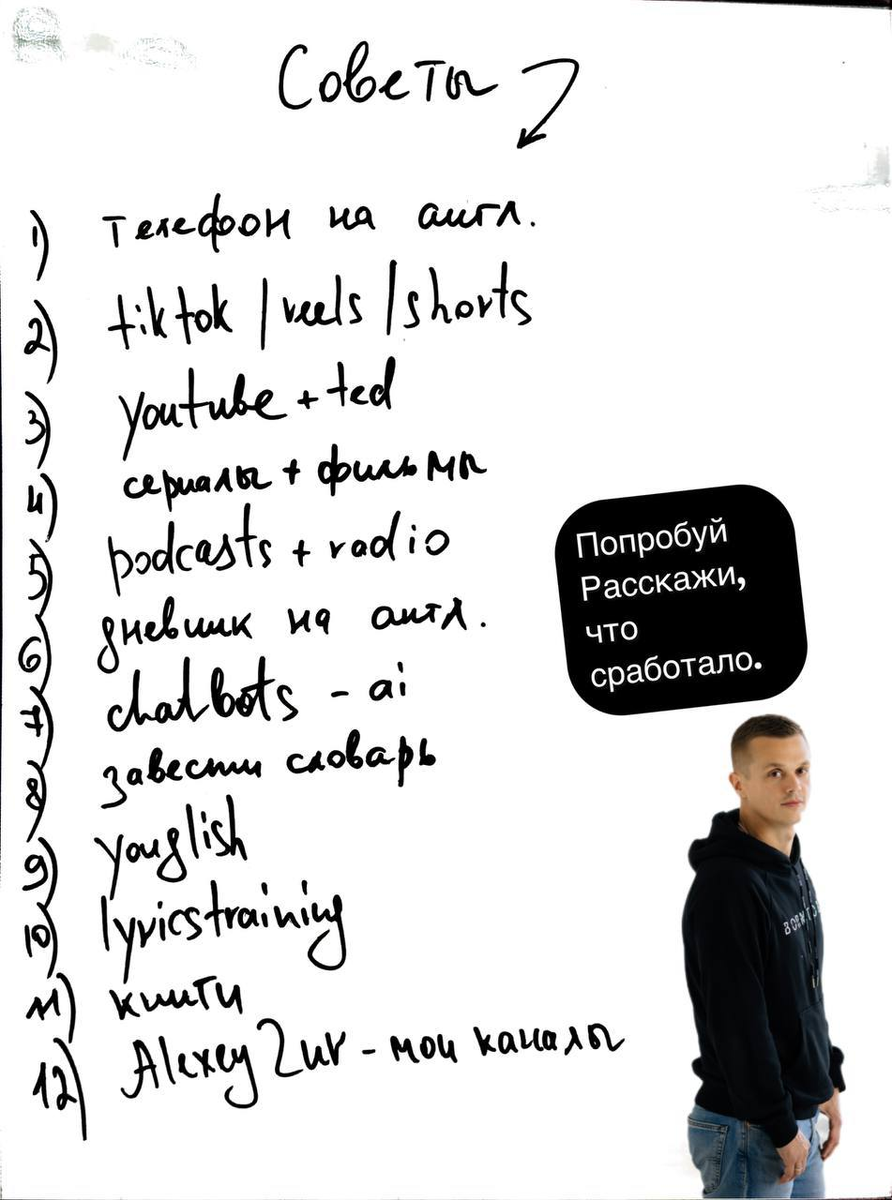 Советы
1) телефон на англ.
2) tiktok / reels / shorts
3) youtube + ted
4) сериалы + фильмы
5) podcasts + radio
6) дневник на англ.
7) chatbots - ai
8) завести словарь
9) youglish
10) lyricstraining
11) книги
12) Alexey Zur - мои каналы
Попробуй
Расскажи,
что
сработало.